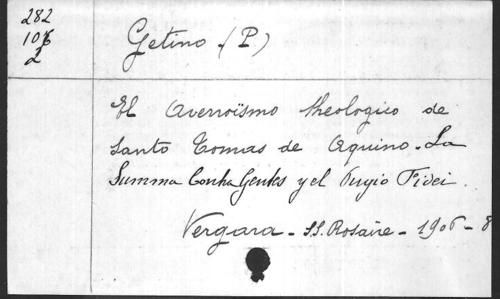 282
106
2
Getino (P)
El Averroïsmo theologico de
Santo Tomas de Aquino - La
Summa Contra Gentes y el Pugio Fidei.
Vergara - SS. Rosaire - 1906 - 8